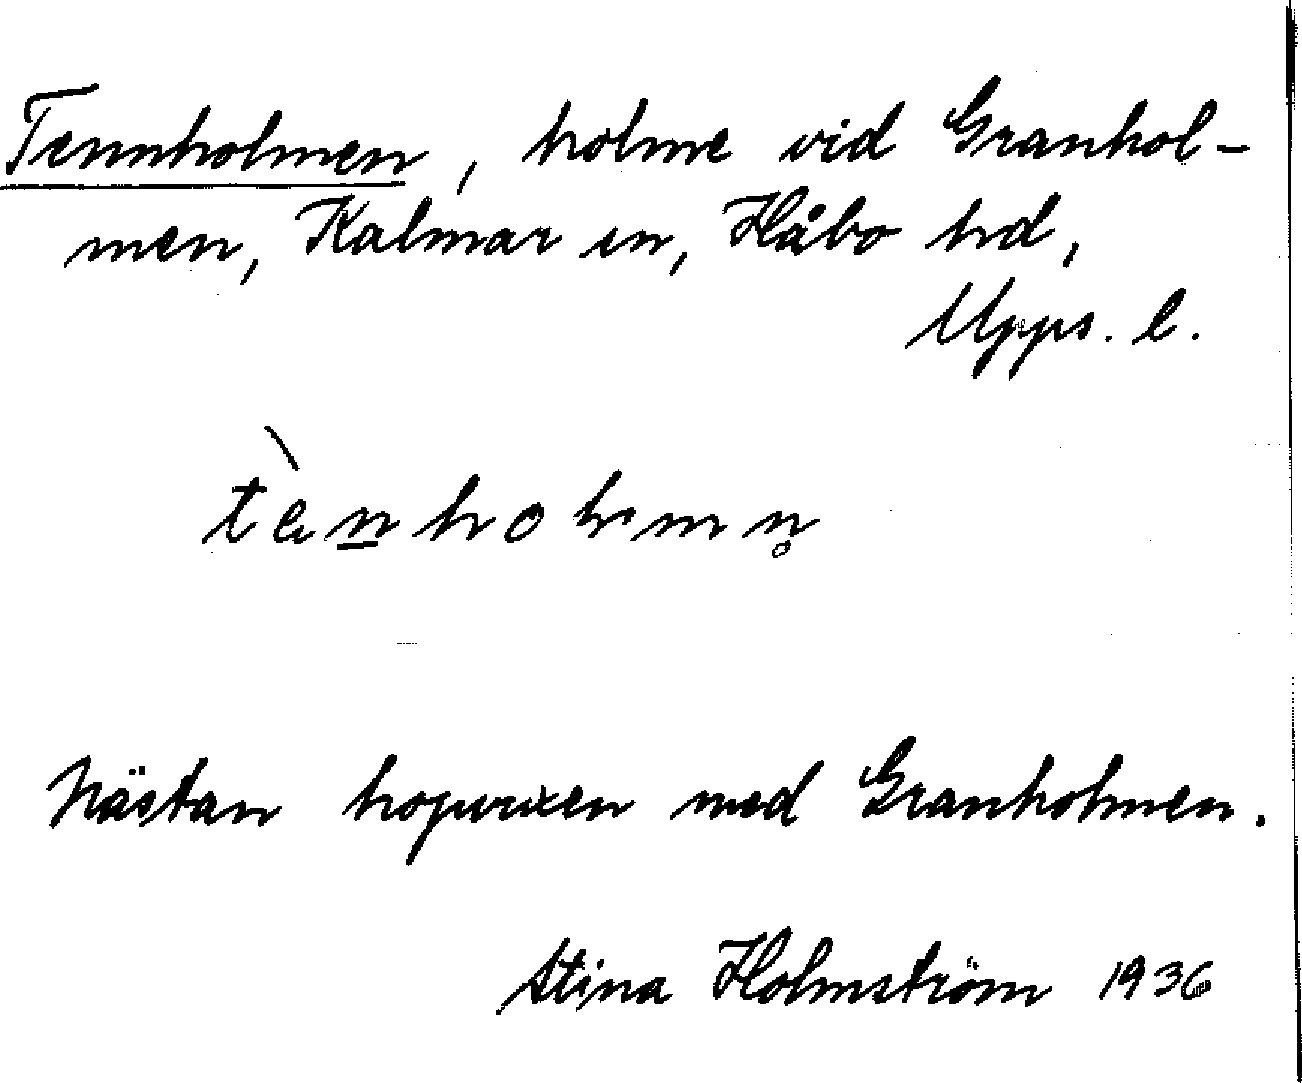 Tennholmen, holme vid Granhol-
men, Kalmar sn, Håbo hd,
Upps. l.
tènholmn̥
Nästan hopvuxen med Granholmen.
Stina Holmström 1936